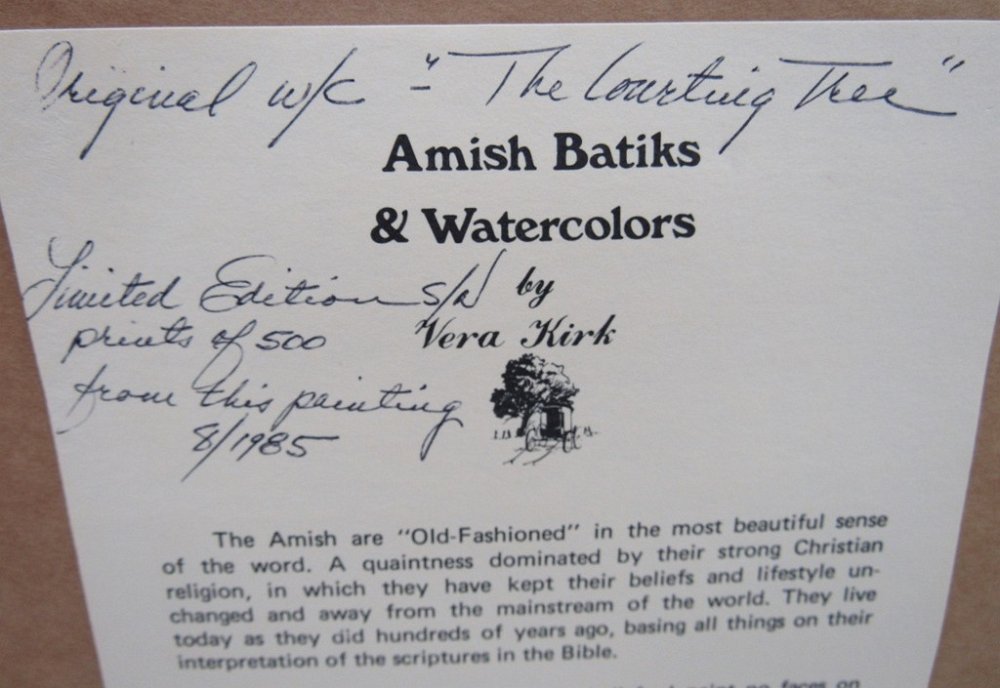 Original w/c - "The Courting Tree"
Amish Batiks
& Watercolors
by
Vera Kirk
Limited Edition s/n
prints of 500
from this painting
8/1985
The Amish are "Old-Fashioned" in the most beautiful sense
of the word. A quaintness dominated by their strong Christian
religion, in which they have kept their beliefs and lifestyle un-
changed and away from the mainstream of the world. They live
today as they did hundreds of years ago, basing all things on their
interpretation of the scriptures in the Bible.
paint no faces on